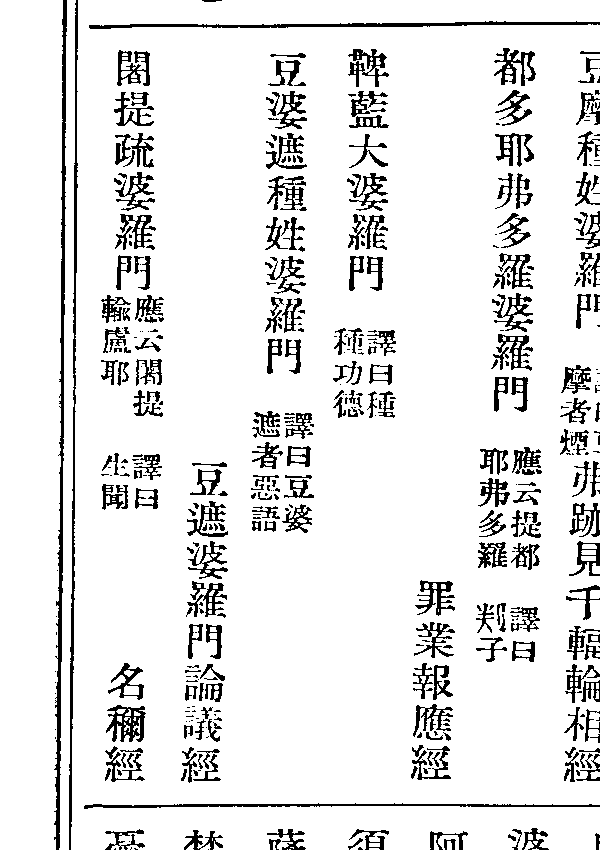 豆摩種姓婆羅門 摩者煙
弗跡見千輻輪相經
都多耶弗多羅婆羅門 應云提都耶弗多羅 譯曰 判子
罪業報應經
鞞藍大婆羅門 譯曰種種功德
豆婆遮種姓婆羅門 譯曰豆婆遮者惡語
豆遮婆羅門論議經
闍提疏婆羅門 應云闍提輸盧耶 譯曰生聞
名稱經
婆
阿
須
薩